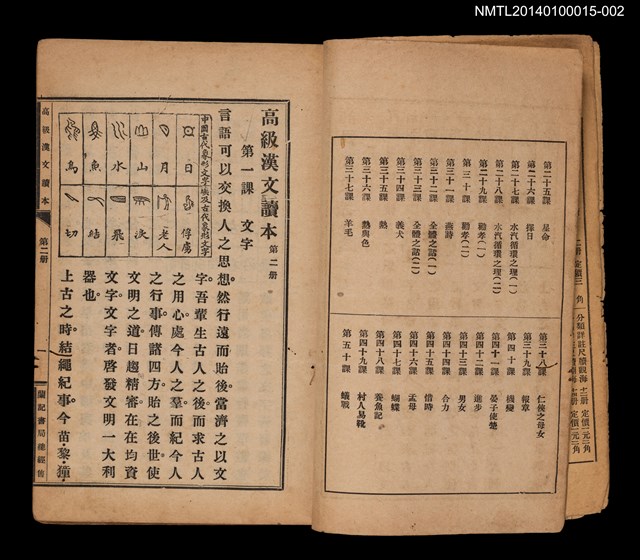 NMTL20140100015-002
第二十五課 星命
第二十六課 擇日
第二十七課 水汽循環之理(一)
第二十八課 水汽循環之理(二)
第二十九課 勸孝(一)
第三十課 勸孝(二)
第三十一課 燕詩
第三十二課 全體之語(一)
第三十三課 全體之語(二)
第三十四課 義犬
第三十五課 熱
第三十六課 熱與色
第三十七課 羊毛
第三十八課 仁俠之母女
第三十九課 報章
第四十課 機變
第四十一課 晏子使楚
第四十二課 進步
第四十三課 男女
第四十四課 合力
第四十五課 惜時
第四十六課 孟母
第四十七課 蝴蝶
第四十八課 養魚記
第四十九課 村人易靴
第五十課 蟻戰
高級漢文讀本 第二册
第一課 文字
言語可以交換人之思想。然行遠而貽後。當濟之以文
字。吾輩生古人之後。而求古人
之用心。處今人之羣。而紀今人
之行事。傳諸四方。貽之後世。使
文明之道。日趨精審。在在均資
文字。文字者。啓發文明一大利
器也。
上古之時。結繩紀事。今苗·黎·獞·
中國古代象形文字 埃及古代象形文字
日
月
山
水
魚
鳥
俘虜
老人
飛
結
切
高級漢文讀本
第二册
一
蘭記書局總經售